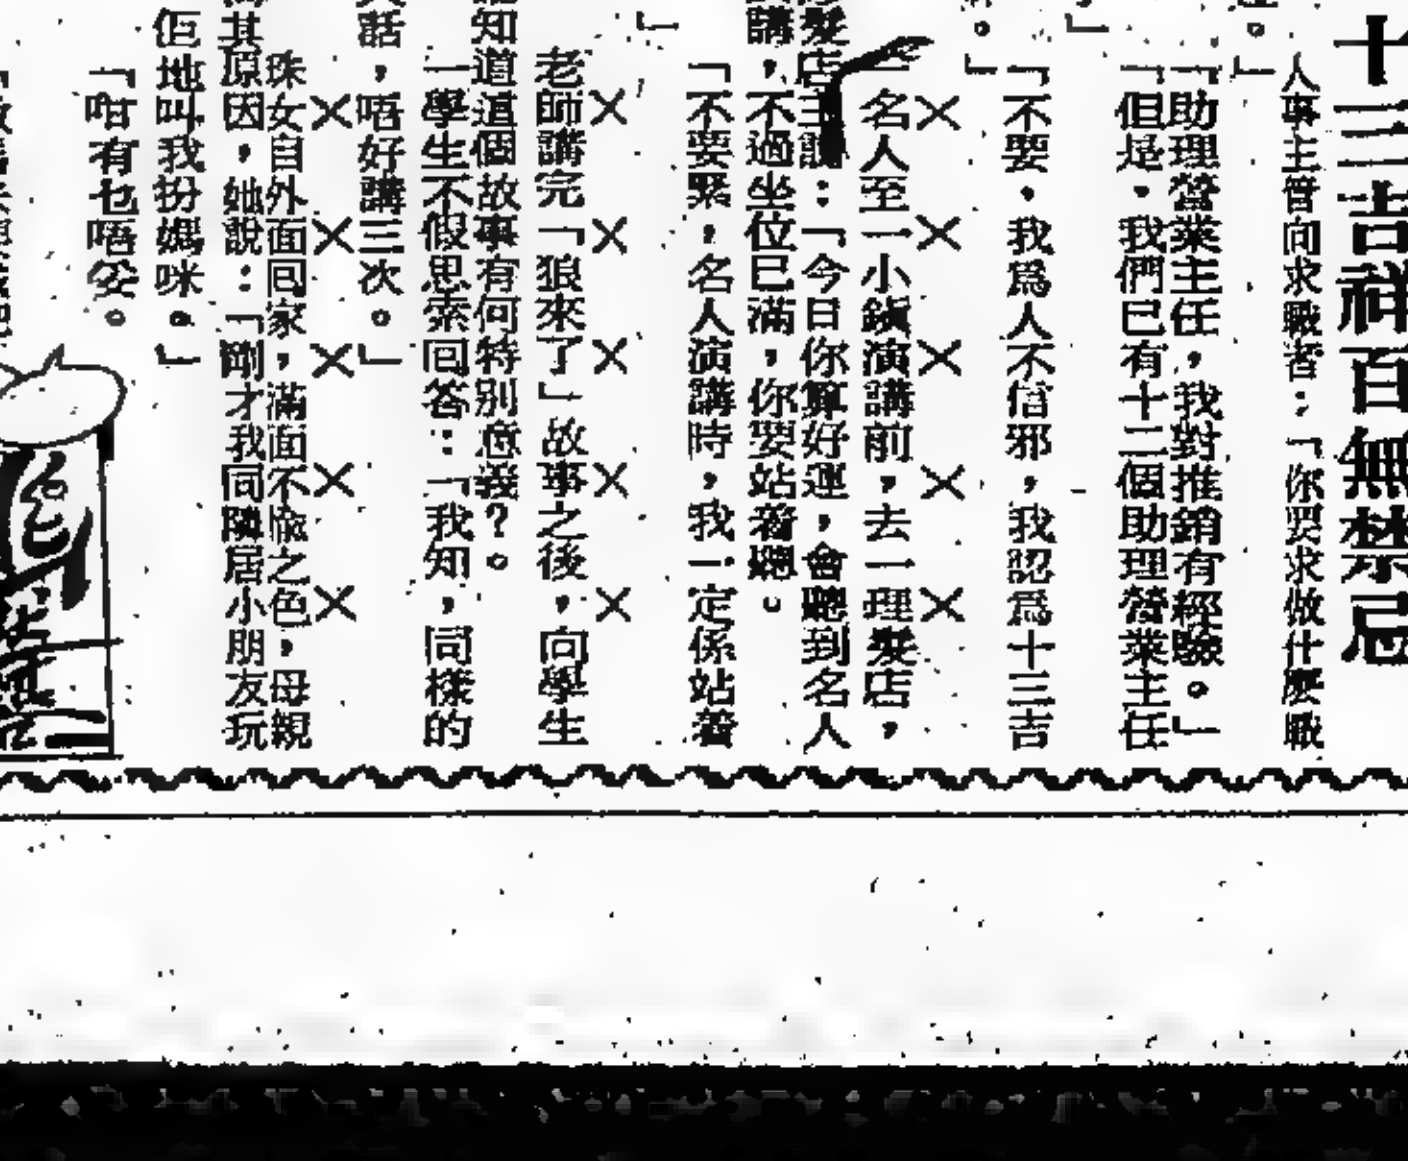 十三吉祥百無禁忌
人事主管向求職者：「你要求做什麽職
。」
「助理營業主任，我對推銷有經驗。」
「但是，我們已有十二個助理營業主任
」
「不要，我爲人不信邪，我認爲十三吉
。」
×××××
一名人至一小鎮演講前，去一理髮店，
髮店主講：「今日你算好運，會聽到名人
講，不過坐位已滿，你要站着聽。
「不要緊，名人演講時，我一定係站着
」
×××××
老師講完「狼來了」故事之後，向學生
知道這個故事有何特別意義？。
一學生不假思索回答：「我知，同樣的
話，唔好講三次。」
×××××
珠女自外面回家，滿面不愉之色，母親
其原因，她說：「剛才我同隣居小朋友玩
但地叫我扮媽咪。」
「咁有乜唔妥。